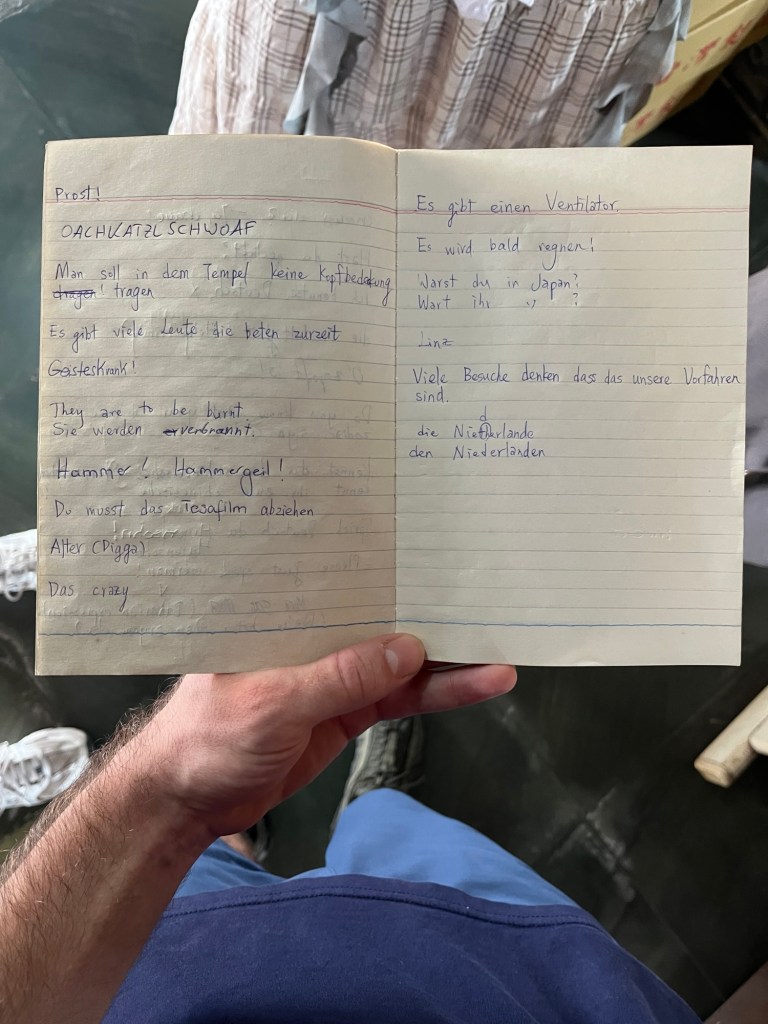 Prost!
OACHKATZLSCHWOAF
Man soll in dem Tempel keine Kopfbedekung
dragen! tragen
Es gibt viele Leute die beten zurzeit
Geisteskrank!
They are to be burnt.
Sie werden verbrannt.
Hammer! Hammergeil!
Du musst das Tesafilm abziehen
Alter (Digga)
Das crazy
Es gibt einen Ventilator.
Es wird bald regnen!
Warst du in Japan?
Wart ihr " ?
Linz
Viele Besuche denken dass das unsere Vorfahren
sind.
die Niederlande
den Niederlanden